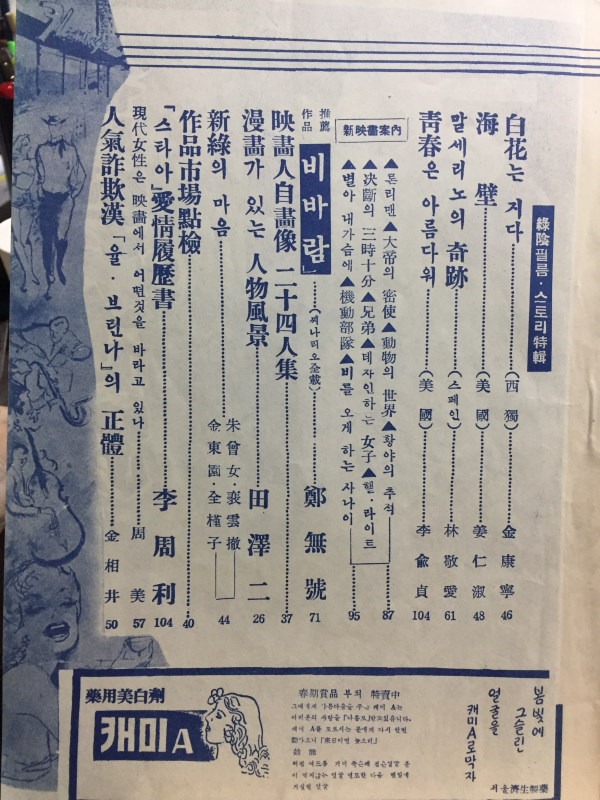 綠陰필름·스토리特輯
白花는 지다……(西獨)……金康寧 46
海壁……(美國)……姜仁淑 48
말세리노의 奇跡……(스페인)……林敬愛 61
靑春은 아름다워……(美國)……李兪貞 104
新映畵案內
▲론리맨▲大帝의 密使▲動物의 世界▲황야의 추적 87
▲決斷의 三時十分▲兄弟▲데자인하는 女子▲핸·라이트
▲별아 내가슴에▲機動部隊▲비를 오게 하는 사나이 95
推薦作品
「비바람」……(씨나리오全載)……鄭無號 71
映畵人自畵像 二十四人集……37
漫畵가 있는 人物風景……田澤二 26
新綠의 마음……朱曾女·裵雲撤
金東園·全槿子 44
作品市場點檢……40
「스타아」愛情履歷書……李周利 104
現代女性은 映畵에서 어떤것을 바라고 있나……周美 57
人氣詐欺漢「율·브린나」의 正體……金相井 50
봄빛에
그슬린
얼굴을
캐미A로막자
서울濟生製藥
春期賞品 부처 特賣中
藥用美白劑
캐미A